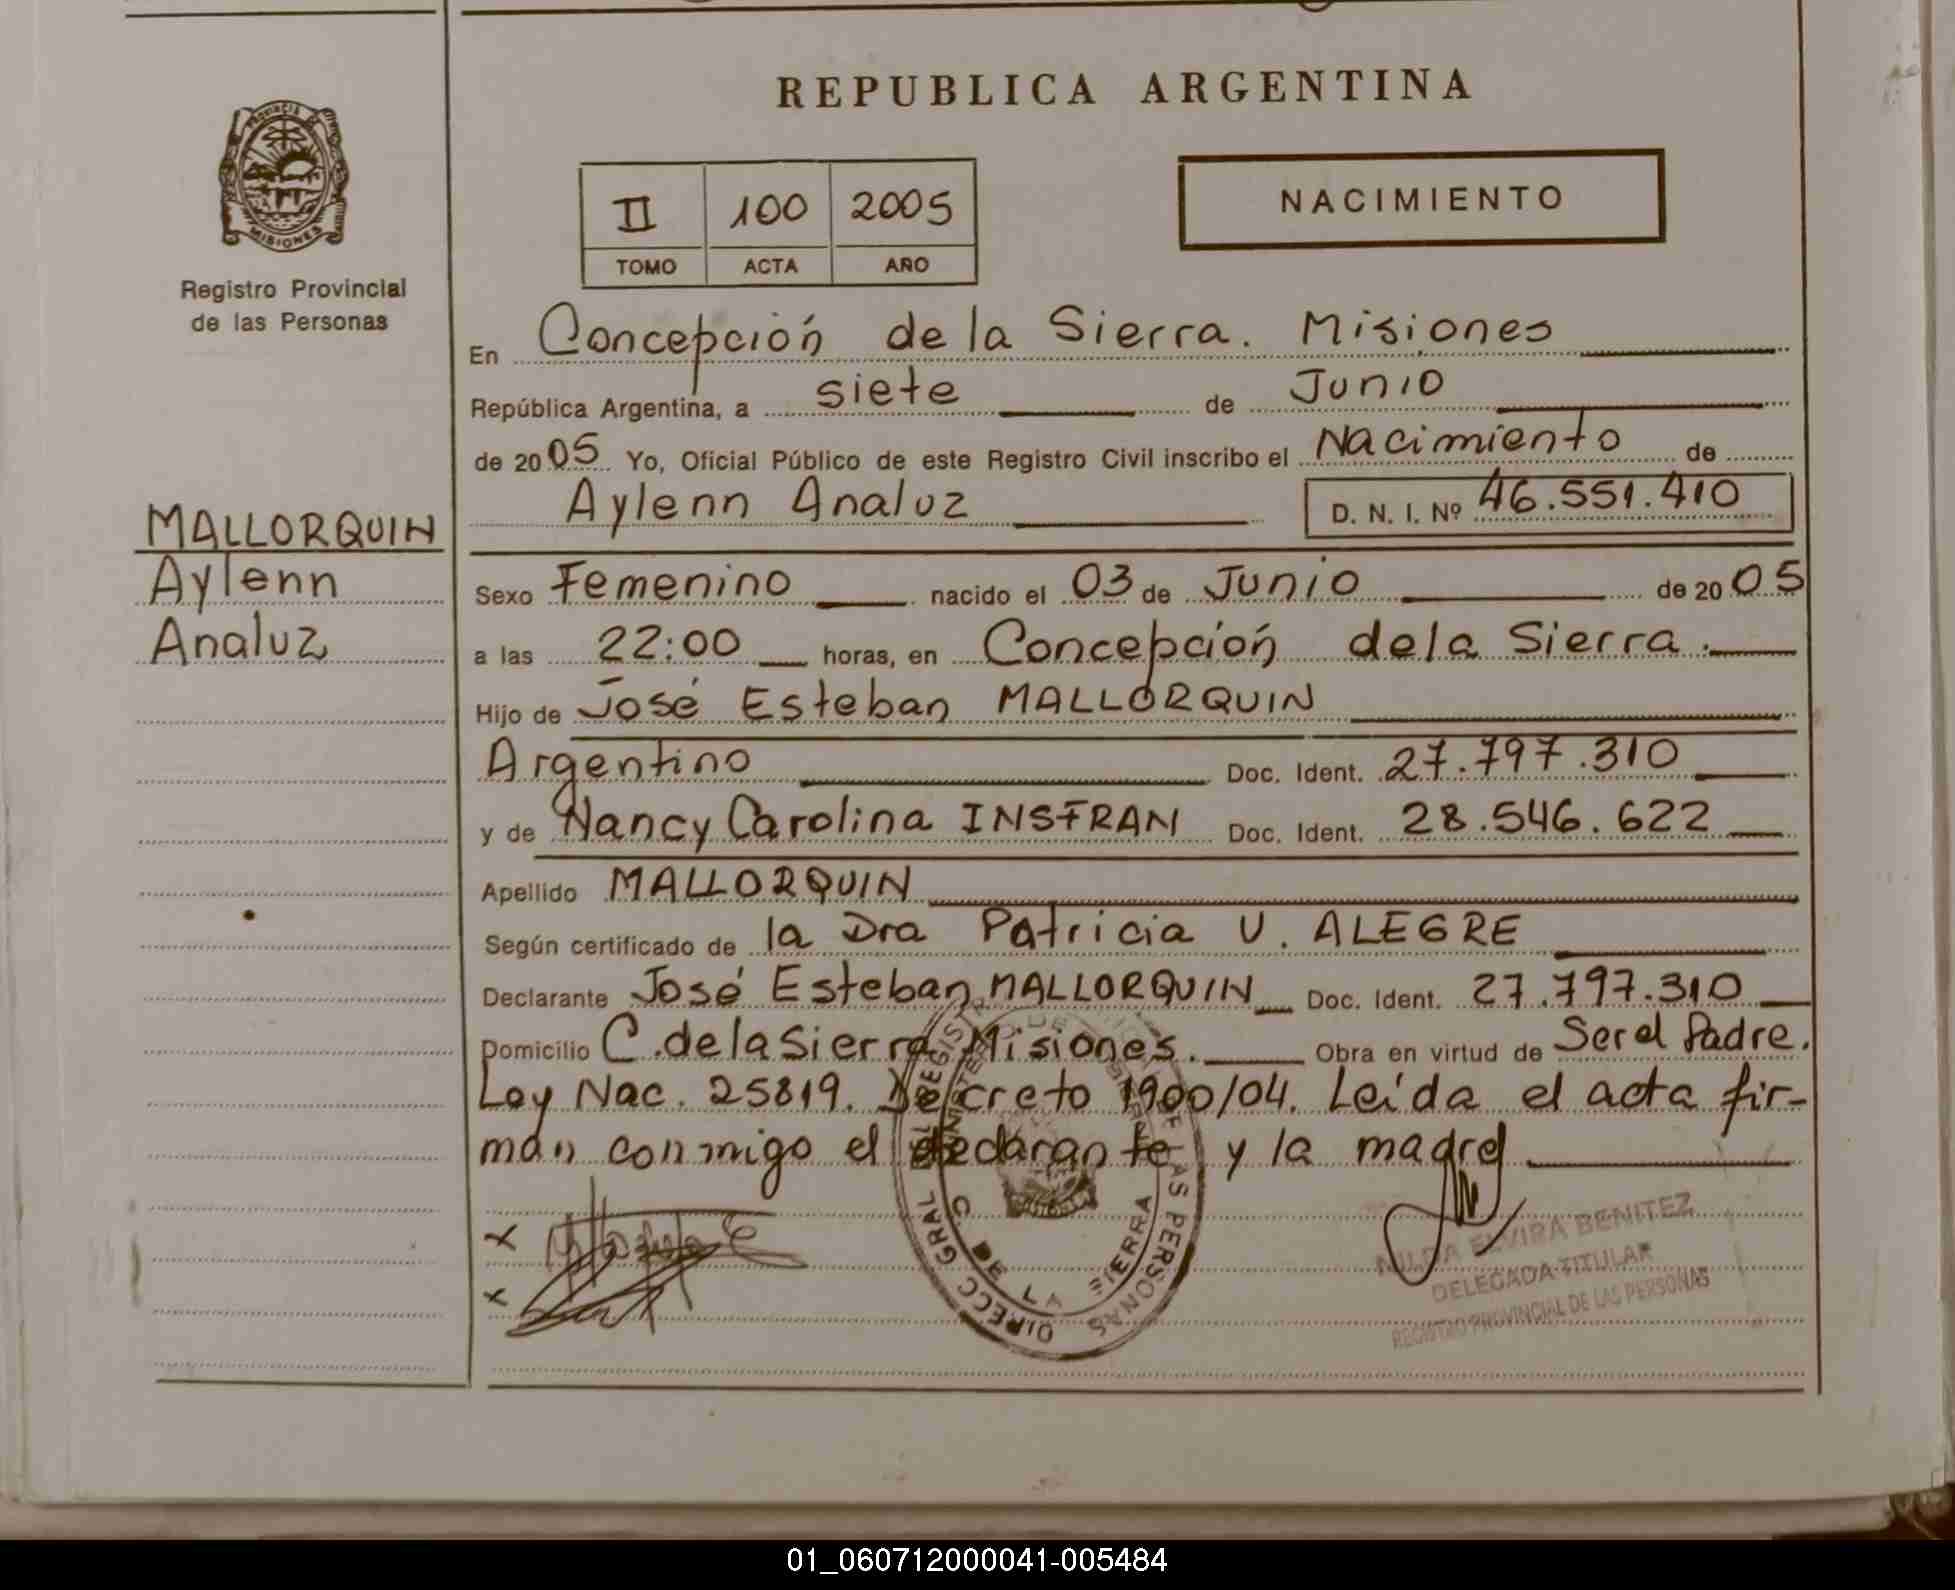 REPUBLICA ARGENTINA
PROVINCIA DE MISIONES
Registro Provincial
de las Personas
II 100 2005
TOMO ACTA AÑO
NACIMIENTO
En Concepción de la Sierra. Misiones
República Argentina, a siete de Junio
de 2005 Yo, Oficial Público de este Registro Civil inscribo el Nacimiento de
Aylenn Analuz D. N. I. Nº 46.551.410
MALLORQUIN
Aylenn
Analuz
Sexo Femenino nacido el 03 de Junio de 2005
a las 22:00 horas, en Concepción de la Sierra.
Hijo de José Esteban MALLORQUIN
Argentino Doc. Ident. 27.797.310
y de Nancy Carolina INSFRAN Doc. Ident. 28.546.622
Apellido MALLORQUIN
Según certificado de la Dra Patricia U. ALEGRE
Declarante José Esteban MALLORQUIN Doc. Ident. 27.797.310
Domicilio C. de la Sierra Misiones. Obra en virtud de Ser el Padre.
Ley Nac. 25819. Decreto 1900/04. Leída el acta fir-
man conmigo el declarante y la madre
x
x
DIRECC GRAL DEL REGISTRO DE LAS PERSONAS
C. DE LA SIERRA
NILDA ELVIRA BENITEZ
DELEGADA TITULAR
REGISTRO PROVINCIAL DE LAS PERSONAS
01_060712000041-005484